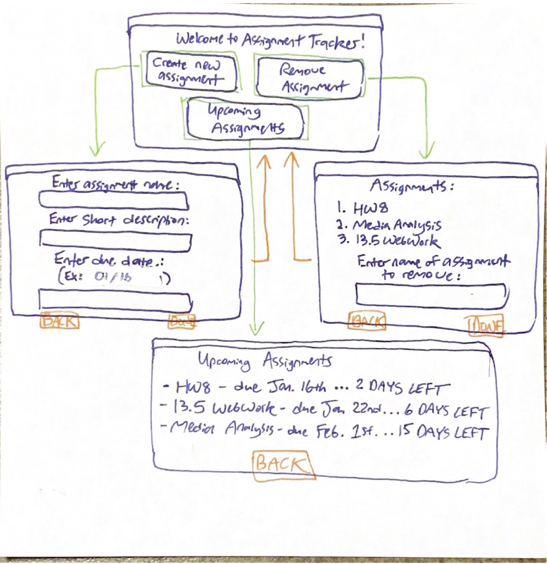 Welcome to Assignment Tracker!
Create new
assignment
Remove
Assignment
Upcoming
Assignments
Enter assignment name:
Enter short description:
Enter due date.:
(Ex: 01/16)
BACK
Done
Assignments:
1. HW8
2. Media Analysis
3. 13.5 WebWork
Enter name of assignment
to remove:
BACK
DONE
Upcoming Assignments
- HW8 - due Jan. 16th ... 2 DAYS LEFT
- 13.5 WebWork - due Jan 22nd... 6 DAYS LEFT
- Media Analysis - due Feb. 1st. ... 15 DAYS LEFT
BACK